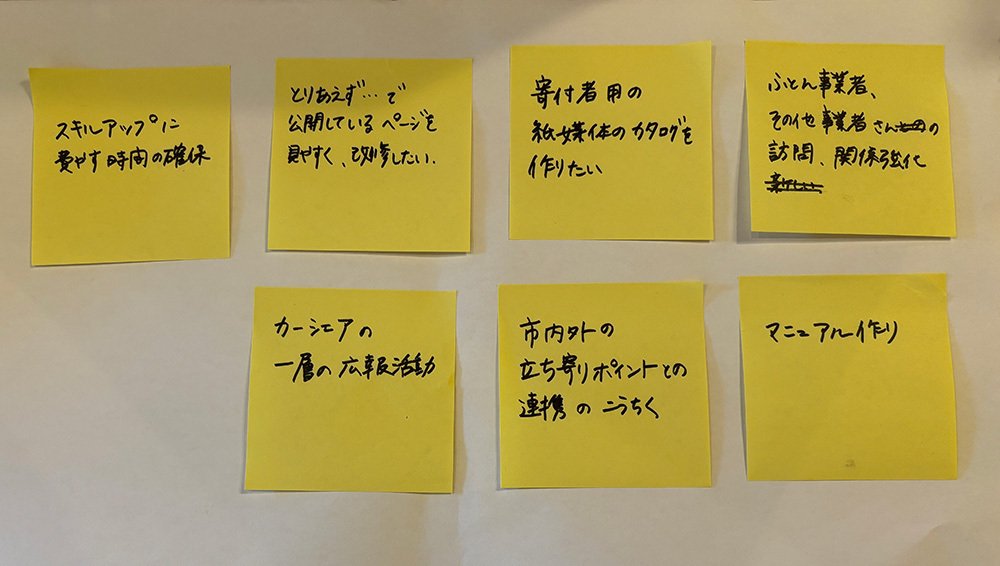 スキルアップに
費やす時間の確保
とりあえず…で
公開しているページを
見やすく、改修したい.
寄付者用の
紙媒体のカタログを
作りたい
ふとん事業者、
その他事業者さんの
訪問、関係強化
カーシェアの
一層の広報活動
市内外の
立ち寄りポイントとの
連携のこうちく
マニュアル作り